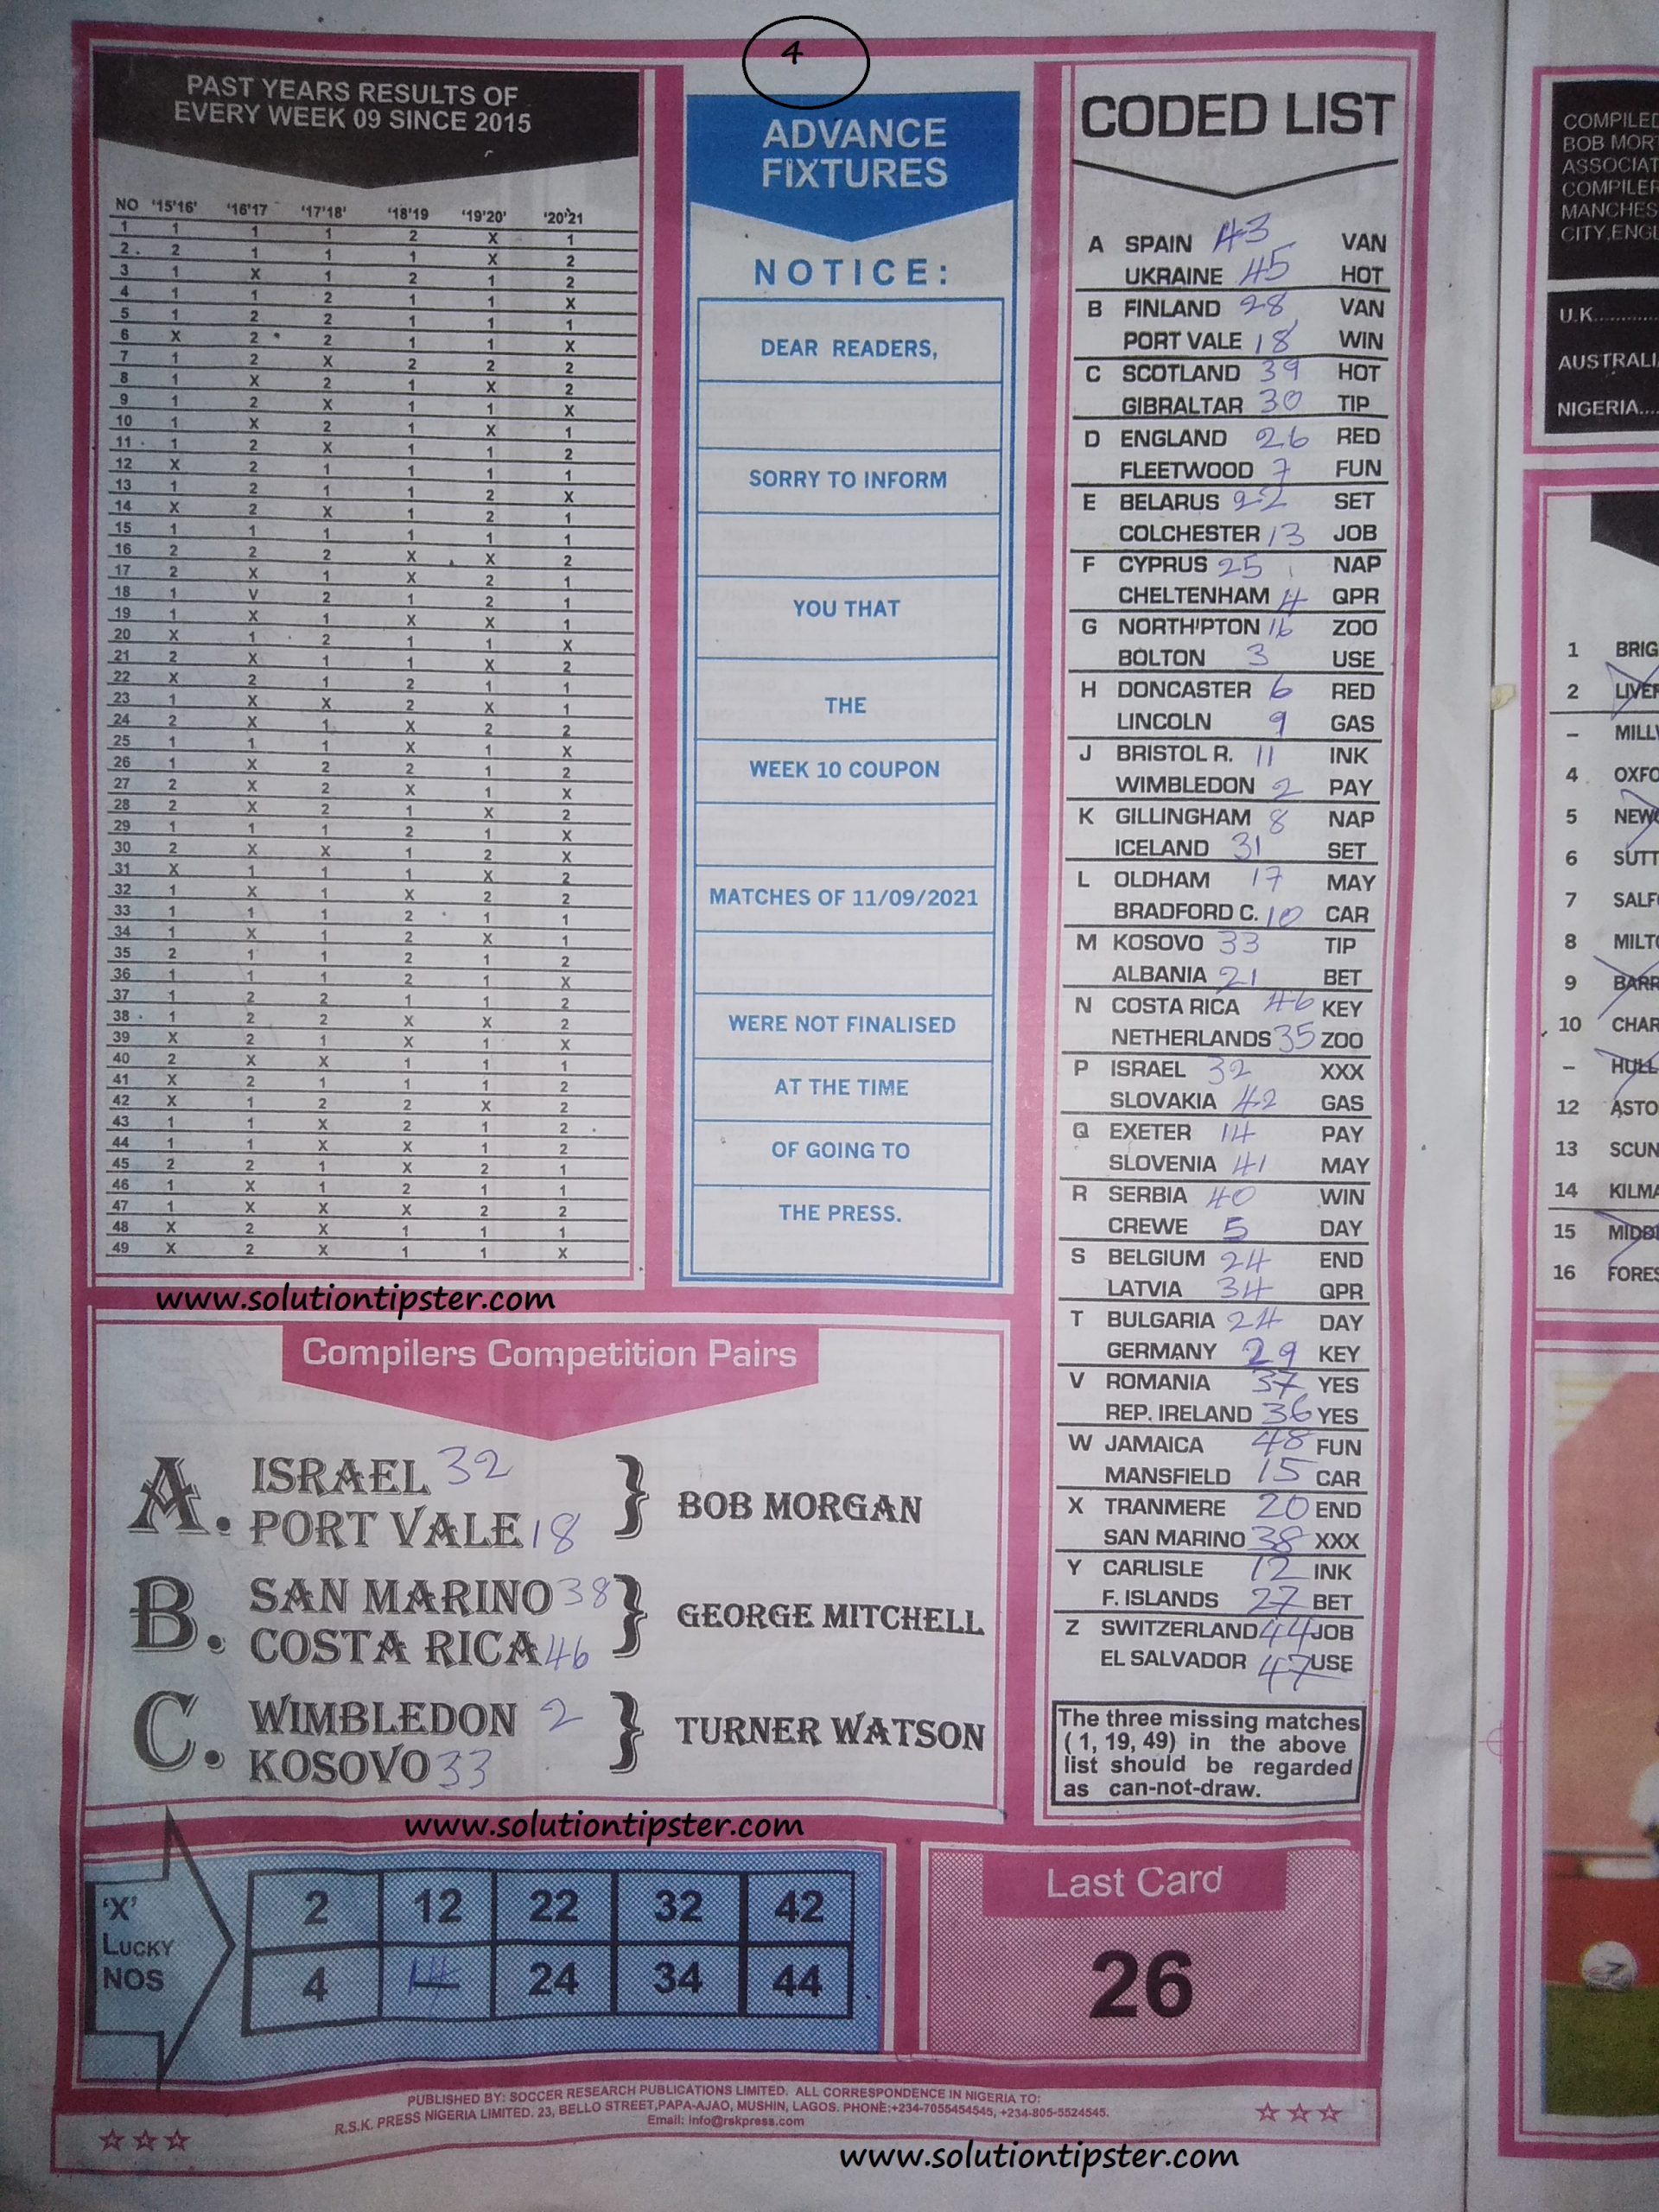 4
PAST YEARS RESULTS OF
EVERY WEEK 09 SINCE 2015
NO '15'16' '16'17 '17'18' '18'19 '19'20' '20'21
1 1 1 1 2 X 1
2 2 1 1 1 X 2
3 1 X 1 2 1 2
4 1 1 2 1 1 X
5 1 2 2 1 1 1
6 X 2 2 1 1 X
7 1 2 X 2 2 2
8 1 X 2 1 X 2
9 1 2 X 1 1 X
10 1 X 2 1 X 1
11 1 2 X 1 1 2
12 X 2 1 1 1 1
13 1 2 1 1 2 X
14 X 2 X 1 2 1
15 1 1 1 1 1 1
16 2 2 2 X X 2
17 2 X 1 X 2 1
18 1 V 2 1 2 1
19 1 X 1 X X 1
20 X 1 2 1 1 X
21 2 X 1 1 X 2
22 X 2 1 2 1 1
23 1 X X 2 X 1
24 2 X 1 X 2 2
25 1 1 1 X 1 X
26 1 X 2 2 1 2
27 2 X 2 X 1 X
28 2 X 2 1 X 2
29 1 1 1 2 1 X
30 2 X X 1 2 X
31 X 1 1 1 X 2
32 1 X 1 X 2 2
33 1 1 1 2 1 1
34 1 X 1 2 X 1
35 2 1 1 2 1 2
36 1 1 1 2 1 X
37 1 2 2 1 1 2
38 1 2 2 X X 2
39 X 2 1 X 1 X
40 2 X X 1 1 1
41 X 2 1 1 1 2
42 X 1 2 2 X 2
43 1 1 X 2 1 2
44 1 1 X X 1 2
45 2 2 1 X 2 1
46 1 X 1 2 1 1
47 1 X X X 2 2
48 X 2 X 1 1 1
49 X 2 X 1 1 X
www.solutiontipster.com
ADVANCE
FIXTURES
NOTICE:
DEAR READERS,
SORRY TO INFORM
YOU THAT
THE
WEEK 10 COUPON
MATCHES OF 11/09/2021
WERE NOT FINALISED
AT THE TIME
OF GOING TO
THE PRESS.
CODED LIST
A SPAIN 43 VAN
UKRAINE 45 HOT
B FINLAND 28 VAN
PORT VALE 18 WIN
C SCOTLAND 39 HOT
GIBRALTAR 30 TIP
D ENGLAND 26 RED
FLEETWOOD 7 FUN
E BELARUS 22 SET
COLCHESTER 13 JOB
F CYPRUS 25 NAP
CHELTENHAM 4 QPR
G NORTH'PTON 16 ZOO
BOLTON 3 USE
H DONCASTER 6 RED
LINCOLN 9 GAS
J BRISTOL R. 11 INK
WIMBLEDON 2 PAY
K GILLINGHAM 8 NAP
ICELAND 31 SET
L OLDHAM 17 MAY
BRADFORD C. 10 CAR
M KOSOVO 33 TIP
ALBANIA 21 BET
N COSTA RICA 46 KEY
NETHERLANDS 35 ZOO
P ISRAEL 32 XXX
SLOVAKIA 42 GAS
Q EXETER 14 PAY
SLOVENIA 41 MAY
R SERBIA 40 WIN
CREWE 5 DAY
S BELGIUM 24 END
LATVIA 34 QPR
T BULGARIA 24 DAY
GERMANY 29 KEY
V ROMANIA 37 YES
REP. IRELAND 36 YES
W JAMAICA 48 FUN
MANSFIELD 15 CAR
X TRANMERE 20 END
SAN MARINO 38 XXX
Y CARLISLE 12 INK
F. ISLANDS 27 BET
Z SWITZERLAND 44 JOB
EL SALVADOR 47 USE
The three missing matches
( 1, 19, 49) in the above
list should be regarded
as can-not-draw.
Compilers Competition Pairs
A. ISRAEL 32
PORT VALE 18
BOB MORGAN
B. SAN MARINO 38
COSTA RICA 46
GEORGE MITCHELL
C. WIMBLEDON 2
KOSOVO 33
TURNER WATSON
www.solutiontipster.com
'X'
LUCKY
NOS
2 12 22 32 42
4 14 24 34 44
Last Card
26
PUBLISHED BY: SOCCER RESEARCH PUBLICATIONS LIMITED. ALL CORRESPONDENCE IN NIGERIA TO:
R.S.K. PRESS NIGERIA LIMITED. 23, BELLO STREET,PAPA-AJAO, MUSHIN, LAGOS. PHONE:+234-7055454545, +234-805-5524545.
Email: info@rskpress.com
www.solutiontipster.com
COMPILED
BOB MOR
ASSOCIAT
COMPILER
MANCHES
CITY,ENGL
U.K.............
AUSTRALI
NIGERIA....
1 BRIG
2 LIVER
– MILLW
4 OXFO
5 NEWC
6 SUTT
7 SALF
8 MILTO
9 BARR
10 CHAR
– HULL
12 ASTO
13 SCUN
14 KILMA
15 MIDD
16 FORES